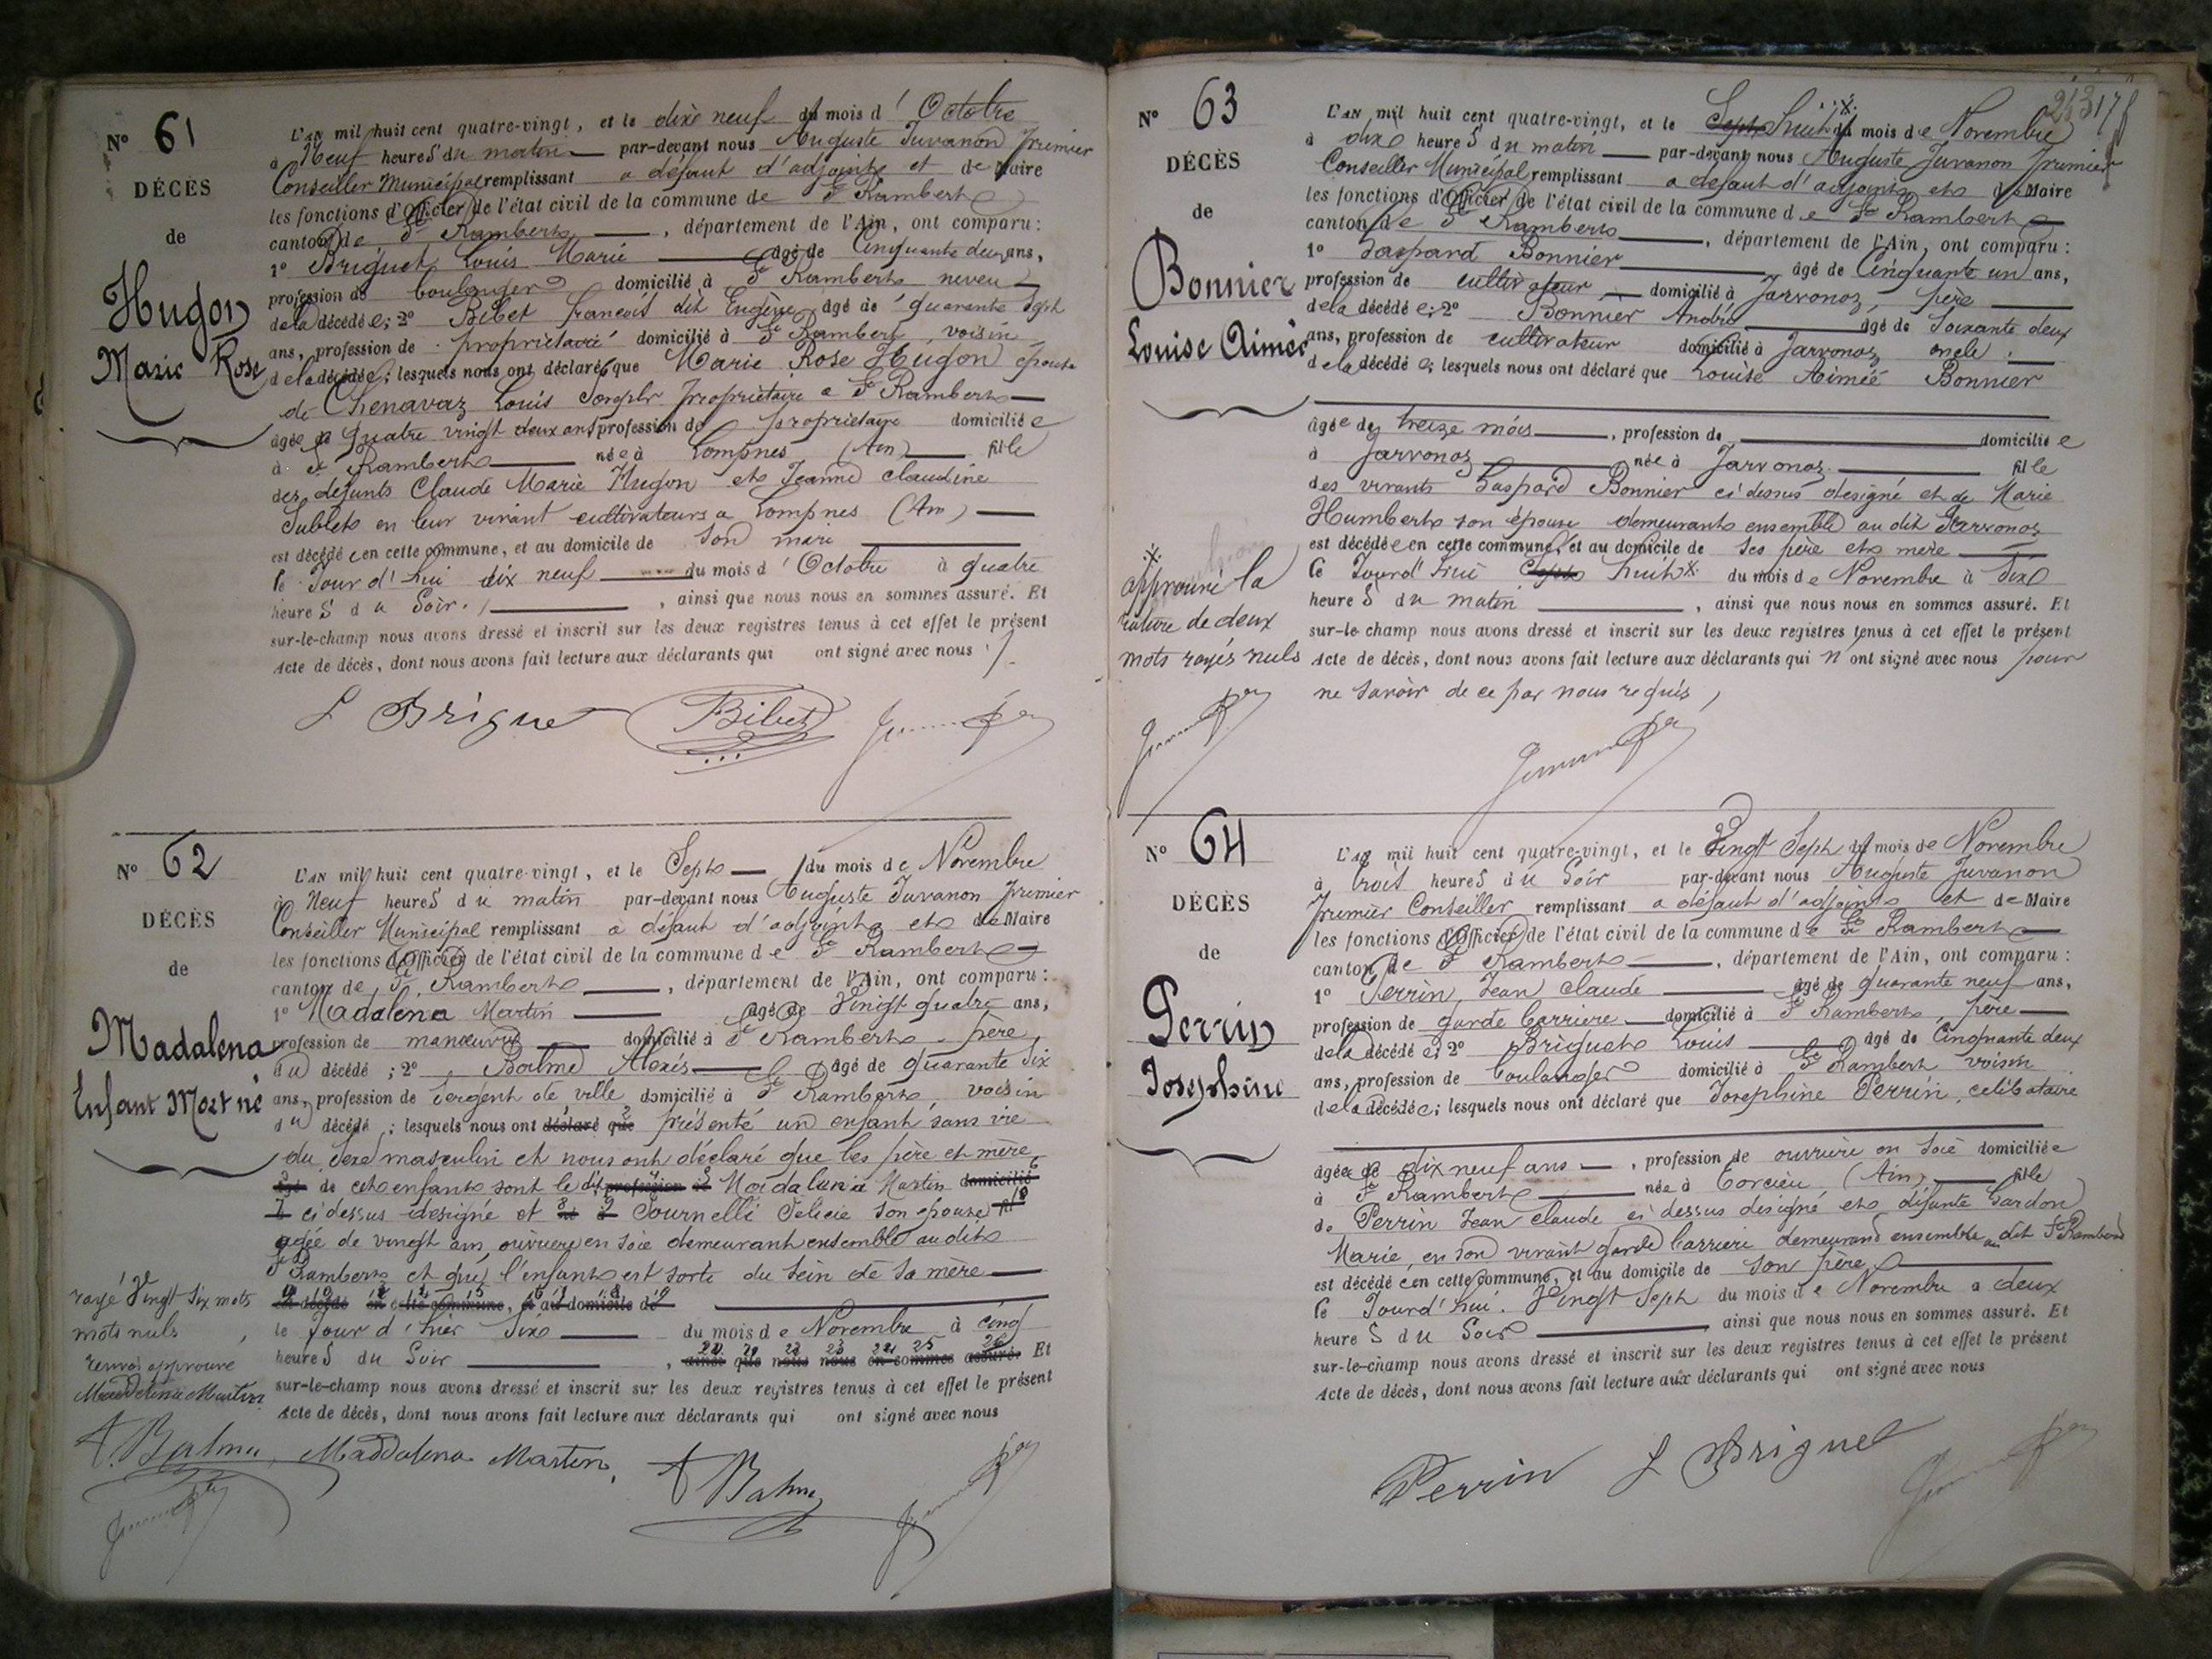 N° 61
DÉCÈS
de
Hugon
Marie Rose
L'AN mil huit cent quatre-vingt, et le dixe neuf du mois d'Octobre
à Neuf heures du matin par-devant nous Auguste Juvanon premier
Conseiller Municipal remplissant a défaut d'adjoints et de Maire
les fonctions d'Officier de l'état civil de la commune de St Rambert
canton de St Rambert, département de l'Ain, ont comparu:
1° Briguet Louis Marie âgé de Cinquante deux ans,
profession de boulanger domicilié à St Rambert neveu
de la décédée; 2° Bibet francois dit Eugène âgé de quarante sept
ans, profession de propriétaire domicilié à St Rambert, voisin
de la décédée; lesquels nous ont déclaré que Marie Rose Hugon épouse
de Chenavaz Louis Joseph propriétaire a St Rambert
âgée de quatre vingt deux ans profession de propriétaire domiciliée
à St Rambert née à Lompnes (Ain) fille
des défunts Claude Marie Hugon et Jeanne claudine
Sublet en leur vivant cultivateurs a Lompnes (Ain)
est décédée en cette commune, et au domicile de son mari
le Jour d'hui dix neuf du mois d'Octobre à quatre
heures du Soir, ainsi que nous nous en sommes assuré. Et
sur-le-champ nous avons dressé et inscrit sur les deux registres tenus à cet effet le présent
Acte de décès, dont nous avons fait lecture aux déclarants qui ont signé avec nous
L Briguet Bibet
N° 62
DÉCÈS
de
Madalena
Enfant Mort né
L'AN mil huit cent quatre-vingt, et le Sept du mois de Novembre
à Neuf heures du matin par-devant nous Auguste Juvanon premier
Conseiller Municipal remplissant a défaut d'adjoints et de Maire
les fonctions d'Officier de l'état civil de la commune de St Rambert
canton de St Rambert, département de l'Ain, ont comparu:
1° Madalena Martin âgé de Vingt quatre ans,
profession de manœuvre domicilié à St Rambert, père
du décédé; 2° Balme Alexis âgé de quarante six
ans, profession de Sergent de ville domicilié à St Rambert, voisin
du décédé; lesquels nous ont déclaré que présenté un enfant sans vie
du sexe masculin et nous ont déclaré que les père et mère
de cet enfant sont le dit profession Madalena Martin domicilié
ci dessus désigné et Tournelli Felicie son épouse
agée de vingt ans, ouvrière en soie demeurant ensemble au dit
St Rambert et que l'enfant est sorti du sein de sa mère
est décédé en cette commune, et au domicile de
le Jour d'hier Six du mois de Novembre à cinq
heures du Soir, ainsi que nous nous en sommes assuré. Et
sur-le-champ nous avons dressé et inscrit sur les deux registres tenus à cet effet le présent
Acte de décès, dont nous avons fait lecture aux déclarants qui ont signé avec nous
rayé Vingt Six mots
mots nuls
renvoi approuvé
Maddalena Martin
A. Balme, Maddalena Martin, A Balme
N° 63
DÉCÈS
de
Bonnier
Louise Aimée
L'AN mil huit cent quatre-vingt, et le Sept huit du mois de Novembre
à dixe heures du matin par-devant nous Auguste Juvanon premier
Conseiller Municipal remplissant a défaut d'adjoints et de Maire
les fonctions d'Officier de l'état civil de la commune de St Rambert
canton de St Rambert, département de l'Ain, ont comparu:
1° Gaspard Bonnier âgé de Cinquante un ans,
profession de cultivateur domicilié à Javornoz, père
de la décédée; 2° Bonnier André âgé de Soixante deux
ans, profession de cultivateur domicilié à Javornoz oncle
de la décédée; lesquels nous ont déclaré que Louise Aimée Bonnier
âgée de treize mois, profession de domiciliée
à Javornoz née à Javornoz fille
des vivants Gaspard Bonnier ci dessus désigné et de Marie
Humbert son épouse demeurants ensemble au dit Javornoz
est décédée en cette commune, et au domicile de ses père et mère
le Jourd'hui Sept huit du mois de Novembre à dixe
heures du matin, ainsi que nous nous en sommes assuré. Et
sur-le-champ nous avons dressé et inscrit sur les deux registres tenus à cet effet le présent
Acte de décès, dont nous avons fait lecture aux déclarants qui n'ont signé avec nous pour
ne savoir de ce par nous requis,
approuvé la
rature de deux
mots rayés nuls
N° 64
DÉCÈS
de
Perrin
Josephine
L'AN mil huit cent quatre-vingt, et le Vingt Sept du mois de Novembre
à trois heures du Soir par-devant nous Auguste Juvanon
premier Conseiller remplissant a défaut d'adjoints et de Maire
les fonctions d'Officier de l'état civil de la commune de St Rambert
canton de St Rambert, département de l'Ain, ont comparu:
1° Perrin Jean Claude âgé de quarante neuf ans,
profession de garde barriere domicilié à St Rambert, père
de la décédée; 2° Briguet Louis âgé de Cinquante deux
ans, profession de boulanger domicilié à St Rambert voisin
de la décédée; lesquels nous ont déclaré que Josephine Perrin, célibataire
âgée de dix neuf ans, profession de ouvrière en soie domiciliée
à St Rambert née à Torcieu (Ain) fille
de Perrin Jean Claude ci dessus désigné et défunte Gardon
Marie, en son vivant garde barriere demeurand ensemble au dit St Rambert
est décédée en cette commune, et au domicile de son père
le Jourd'hui Vingt Sept du mois de Novembre a deux
heures du Soir ainsi que nous nous en sommes assuré. Et
sur-le-champ nous avons dressé et inscrit sur les deux registres tenus à cet effet le présent
Acte de décès, dont nous avons fait lecture aux déclarants qui ont signé avec nous
Perrin L Briguet